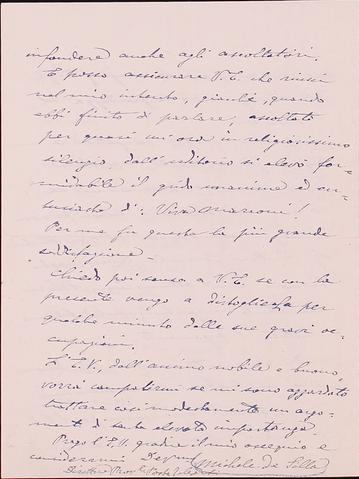 infondere anche agli ascoltatori.
E posso assicurare V.E. che riuscii
nel mio intento, giacchè, quando
ebbi finito di parlare, ascoltato
per quasi un'ora in religiosissimo
silenzio, dall'uditorio si elevò for-
midabile il grido unanime ed en-
tusiasta di: Viva Marconi!
Per me fu questa la più grande
soddisfazione.
Chiedo poi scusa a V.E. se con la
presente vengo a distoglierla per
qualche minuto dalle sue gravi oc-
cupazioni.
L'E.V., dall'animo nobile e buono,
vorrà compatirmi se mi sono azzardato
trattare così modestamente un argo-
mento di tanta elevata importanza.
Prego l'E.V. gradire il mio ossequio e
considerarmi Dev.mo
Michele da Silla
Direttore